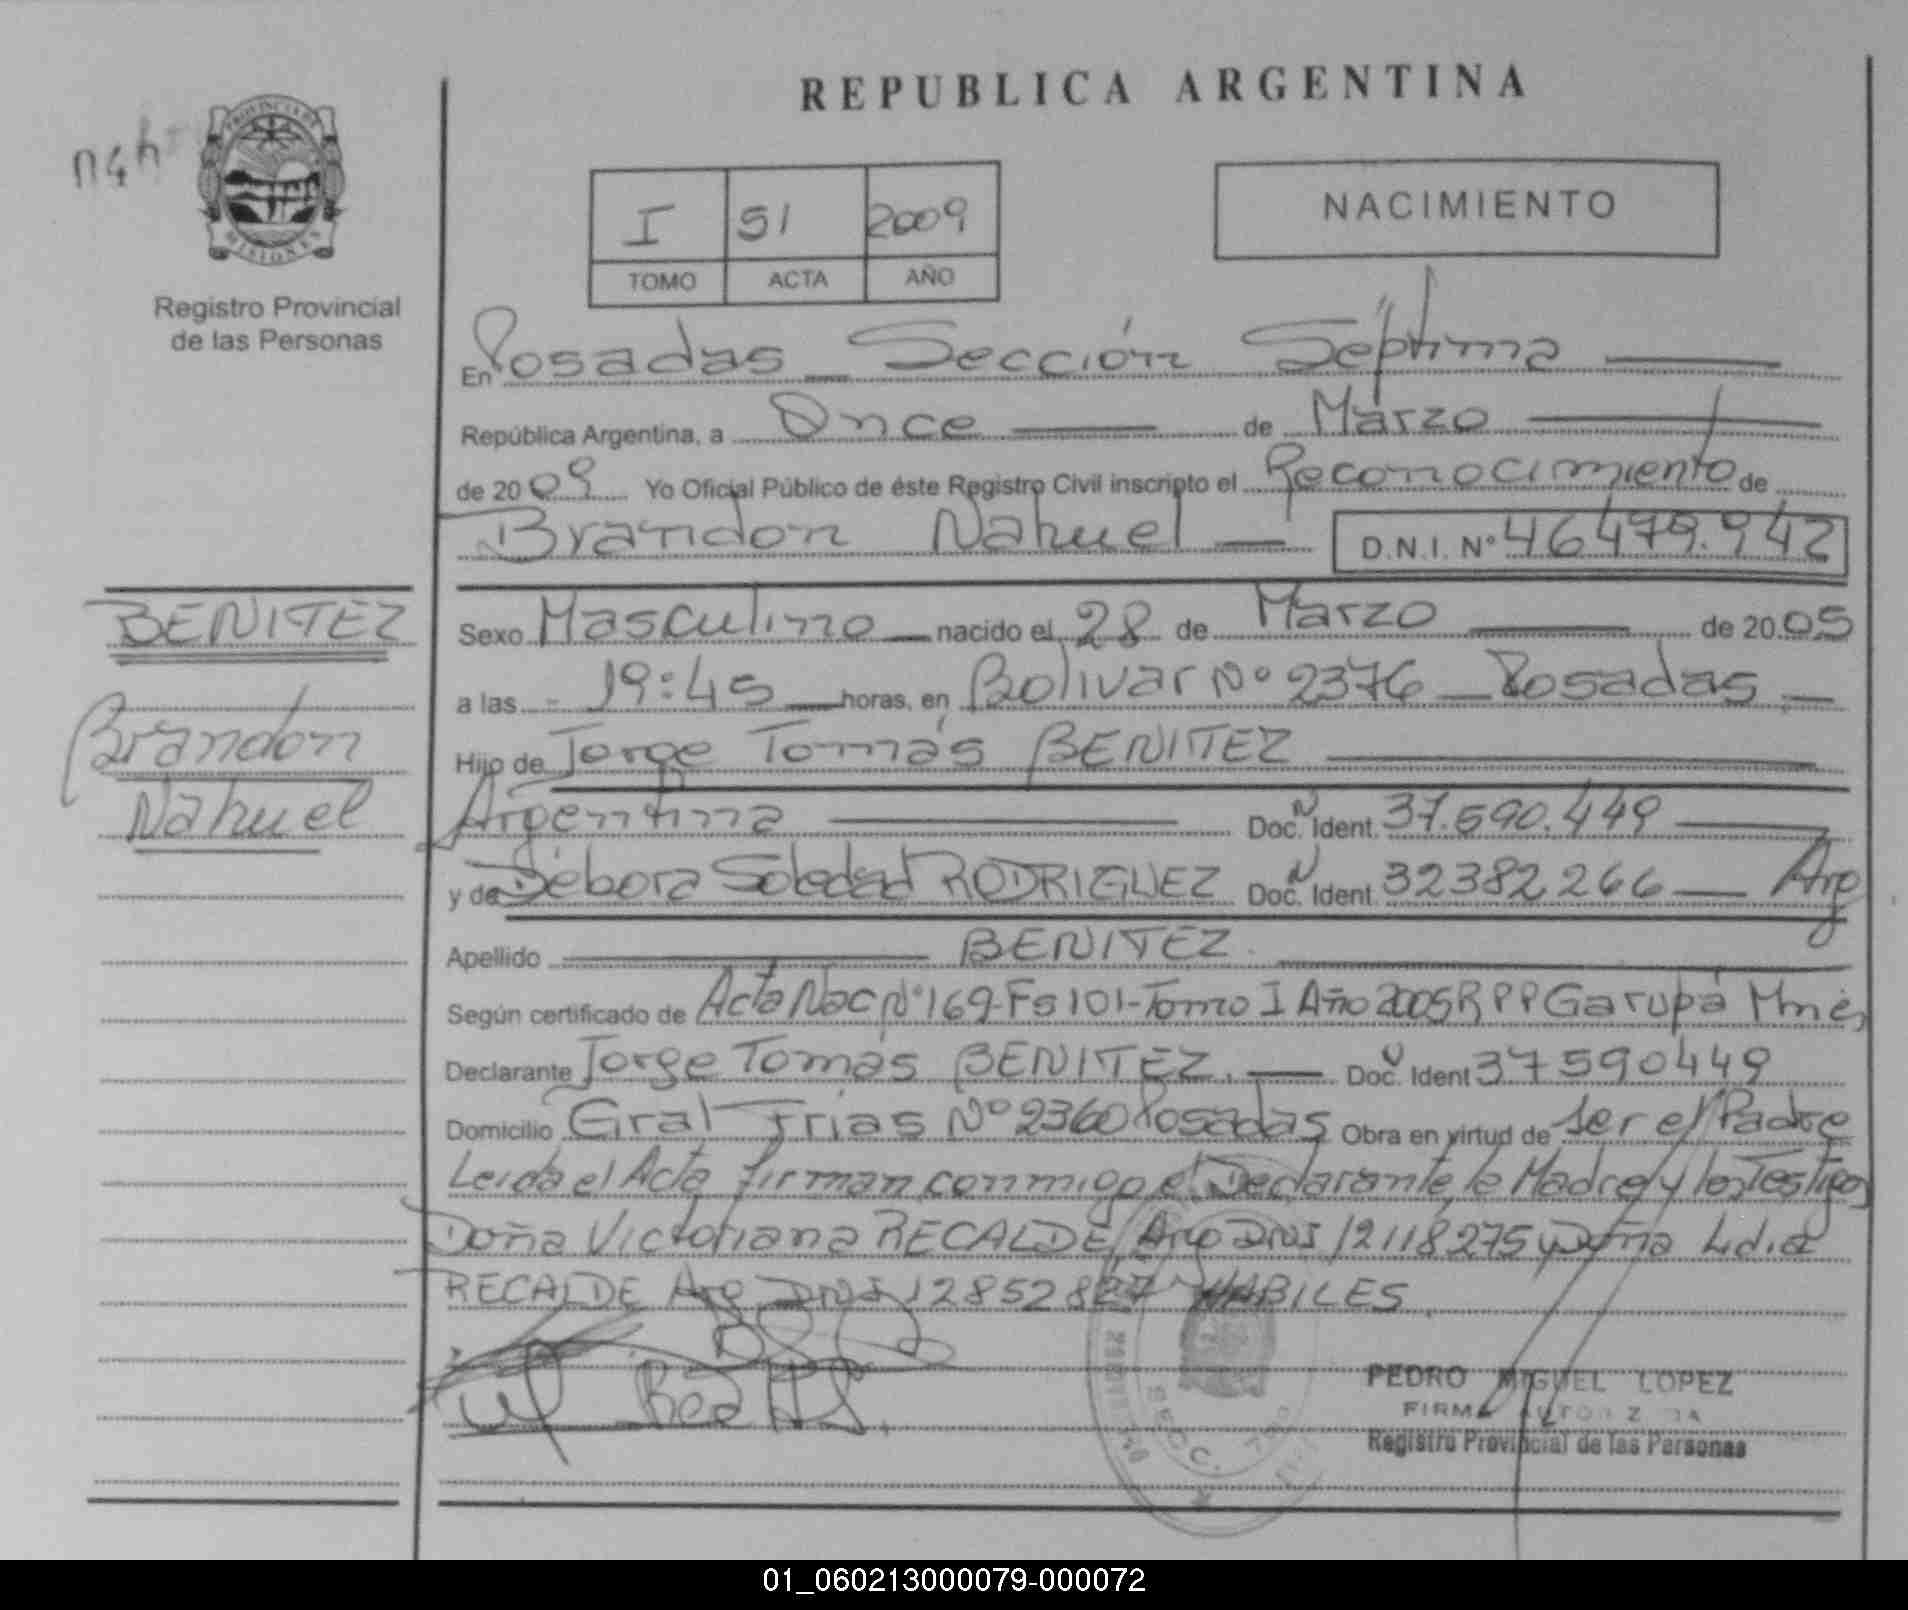 REPUBLICA ARGENTINA
PROVINCIA DE
MISIONES
Registro Provincial
de las Personas
I 51 2009
TOMO ACTA AÑO
NACIMIENTO
En Posadas _ Sección Séptima
República Argentina, a Once de Marzo
de 2009 Yo Oficial Público de éste Registro Civil inscripto el Reconocimiento de
Brandon Nahuel D.N.I. Nº 46479.942
BENITEZ
Brandon
Nahuel
Sexo Masculino nacido el 28 de Marzo de 2005
a las 19:45 horas, en Bolivar Nº 2376 _ Posadas
Hijo de Jorge Tomás BENITEZ
Argentina Doc. Ident. N 37.590.449
y de Débora Soledad RODRIGUEZ Doc. Ident. N 32382266 Arg
Apellido BENITEZ
Según certificado de Acta Nac Nº 169-Fs 101-Tomo I Año 2005 RPP Garupá Mnes
Declarante Jorge Tomás BENITEZ. Doc. Ident 37590449
Domicilio Gral Frias Nº 2360 Posadas Obra en virtud de ser el Padre
Leida el Acta firman conmigo el Declarante, la Madre y los Testigos
Doña Victoriana RECALDE Arg DNI 12118275 y Doña Lidia
RECALDE Arg DNI 12852827 HABILES
PEDRO MIGUEL LOPEZ
FIRMA AUTORIZADA
Registro Provincial de las Personas
SECC. 7ma
01_060213000079-000072